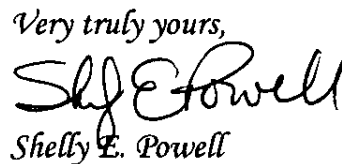 Very truly yours,
Shelly E Powell
Shelly E. Powell